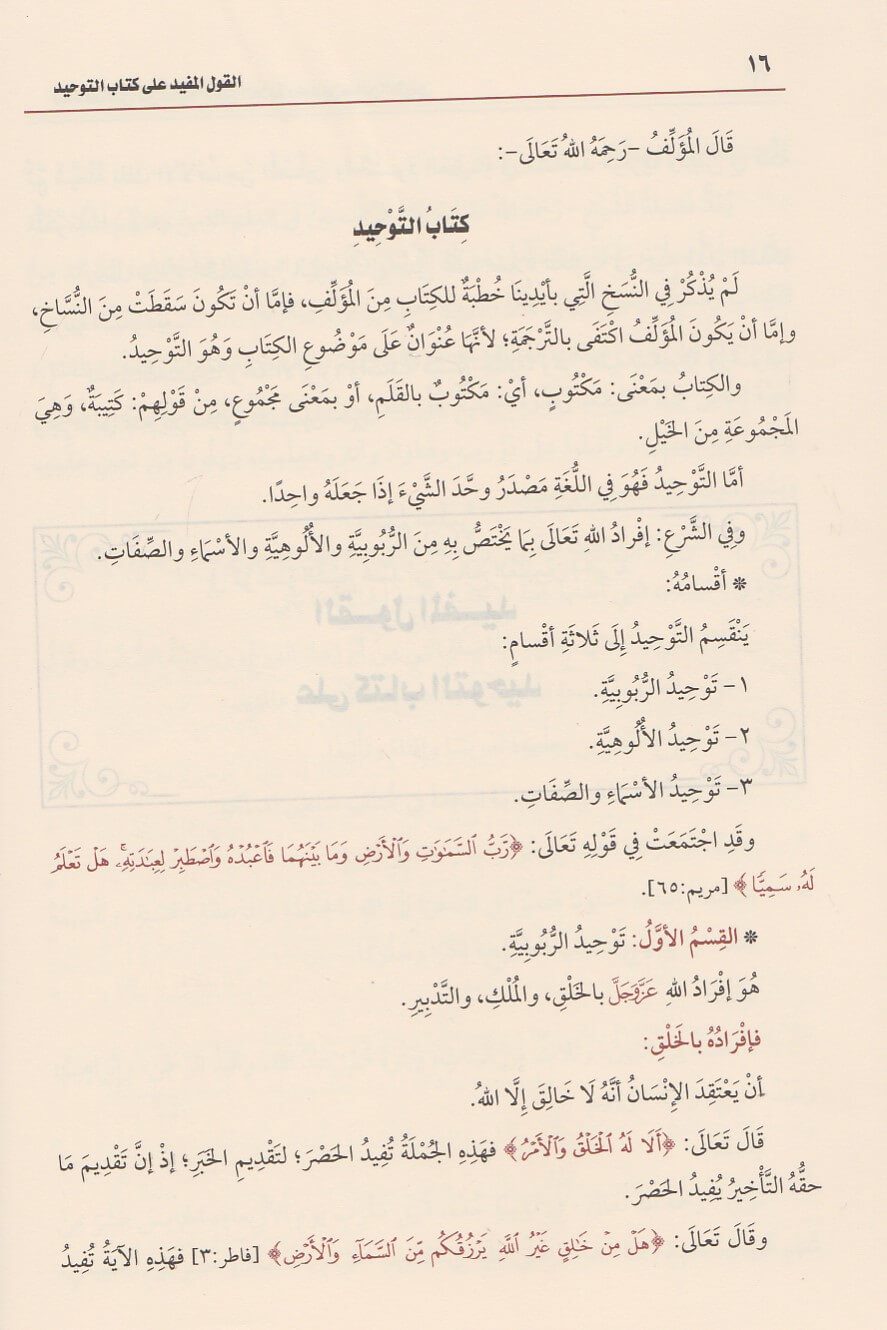 ١٦
القول المفيد على كتاب التوحيد
قَالَ المُؤَلِّفُ -رَحِمَهُ اللهُ تَعَالَى-:
كِتَابُ التَّوْحِيدِ
لَمْ يُذْكَرْ فِي النُّسَخِ الَّتِي بأيْدِينَا خُطْبَةٌ للكِتَابِ مِنَ المُؤَلِّفِ، فإمَّا أنْ تَكُونَ سَقَطَتْ مِنَ النُّسَّاخِ،
وإمَّا أنْ يَكُونَ المُؤَلِّفُ اكْتَفَى بالتَّرْجَمَةِ؛ لأنَّهَا عُنْوَانٌ عَلَى مَوْضُوعِ الكِتَابِ وَهُوَ التَّوْحِيدُ.
والكِتَابُ بمَعْنَى: مَكْتُوبٍ، أيْ: مَكْتُوبٌ بالقَلَمِ، أوْ بمَعْنَى مَجْمُوعٍ، مِنْ قَوْلِهِمْ: كَتِيبَةٌ، وَهِيَ
المَجْمُوعَةِ مِنَ الخَيْلِ.
أمَّا التَّوْحِيدُ فَهُوَ فِي اللُّغَةِ مَصْدَرُ وحَّدَ الشَّيْءَ إذَا جَعَلَهُ واحِدًا.
وفِي الشَّرْعِ: إفْرادُ اللهِ تَعَالَى بِمَا يَخْتَصُّ بِهِ مِنَ الرُّبُوبِيَّةِ والأُلُوهِيَّةِ والأسْمَاءِ والصِّفَاتِ.
* أقْسامُهُ:
يَنْقَسِمُ التَّوْحِيدُ إلَى ثَلَاثَةِ أقْسامٍ:
١- تَوْحِيدُ الرُّبُوبِيَّةِ.
٢- تَوْحِيدُ الأُلُوهِيَّةِ.
٣- تَوْحِيدُ الأسْمَاءِ والصِّفَاتِ.
وقَدِ اجْتَمَعَتْ فِي قَوْلِهِ تَعَالَى: ﴿رَّبُّ ٱلسَّمَٰوَٰتِ وَٱلۡأَرۡضِ وَمَا بَيۡنَهُمَا فَٱعۡبُدۡهُ وَٱصۡطَبِرۡ لِعِبَٰدَتِهِۦۚ هَلۡ تَعۡلَمُ
لَهُۥ سَمِيّٗا﴾ [مريم:٦٥].
* القِسْمُ الأوَّلُ: تَوْحِيدُ الرُّبُوبِيَّةِ.
هُوَ إفْرَادُ اللهِ عَزَّوَجَلَّ بالخَلْقِ، والمُلْكِ، والتَّدْبِيرِ.
فإفْرَادُهُ بالخَلْقِ:
أنْ يَعْتَقِدَ الإنْسَانُ أنَّهُ لَا خَالِقَ إلَّا اللهُ.
قَالَ تَعَالَى: ﴿أَلَا لَهُ ٱلۡخَلۡقُ وَٱلۡأَمۡرُ﴾ فهَذِهِ الجُمْلَةُ تُفِيدُ الحَصْرَ؛ لتَقْدِيمِ الخَبَرِ؛ إذْ إنَّ تَقْدِيمَ مَا
حقُّهُ التَّأْخِيرُ يُفِيدُ الحَصْرَ.
وقَالَ تَعَالَى: ﴿هَلۡ مِنۡ خَٰلِقٍ غَيۡرُ ٱللَّهِ يَرۡزُقُكُم مِّنَ ٱلسَّمَآءِ وَٱلۡأَرۡضِ﴾ [فاطر:٣] فهَذِهِ الآيَةُ تُفِيدُ